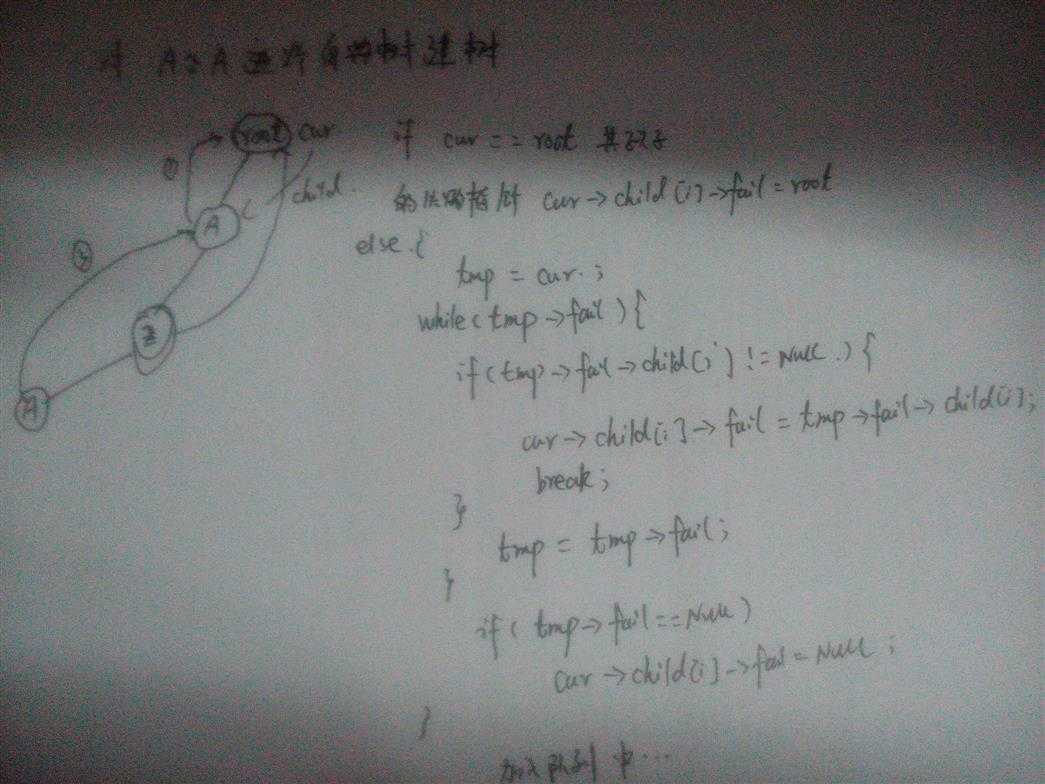 对 A:A 进行字典树建树
root cur
if cur == root 其孩子
① child
的失败指针 cur->child[i]->fail = root
A
else {
③
tmp = cur;
while(tmp->fail){
if(tmp->fail->child[i] != NULL){
A
cur->child[i]->fail = tmp->fail->child[i];
break;
}
tmp = tmp->fail;
}
if(tmp->fail==NULL)
cur->child[i]->fail=NULL;
}
加入队列中...